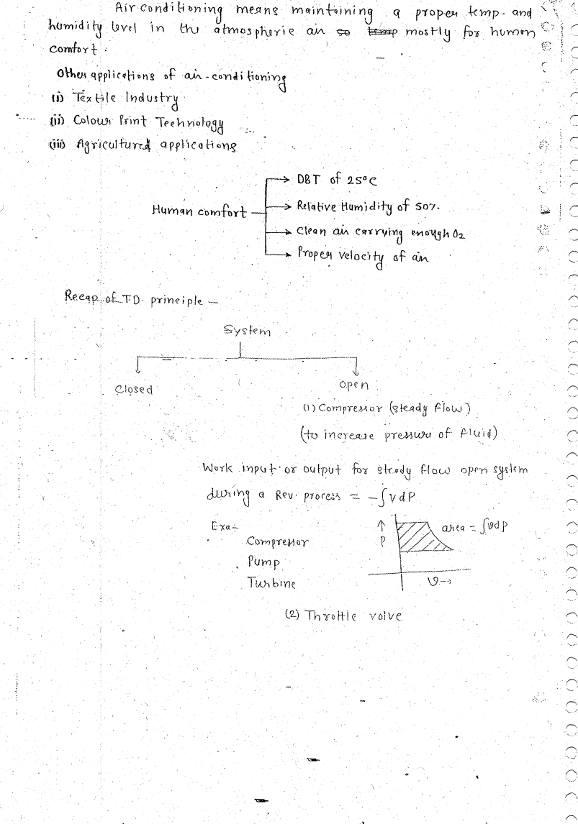 Air conditioning means maintaining a proper temp. and
humidity level in the atmospheric air so temp mostly for human
comfort.
Other applications of air-conditioning
(i) Textile Industry
(ii) Colour Print Technology
(iii) Agricultural applications
Human comfort
DBT of 25°C
Relative Humidity of 50%.
Clean air carrying enough O2
Proper velocity of air
Recap of TD. principle —
System
Closed
Open
(1) Compressor (steady flow)
(to increase pressure of fluid)
Work input or output for steady flow open system
during a Rev. process = -∫vdP
Exa-
Compressor
Pump
Turbine
↑
P
area = ∫vdp
v→
(2) Throttle valve